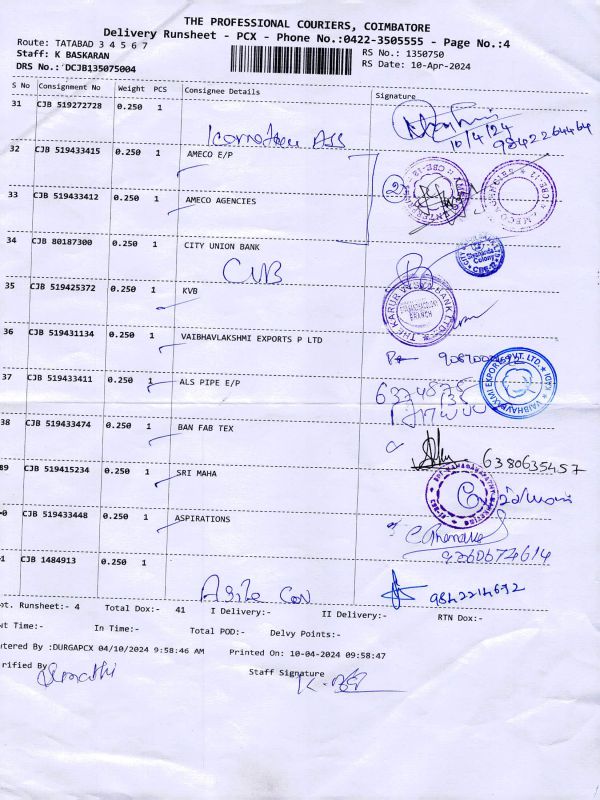 THE PROFESSIONAL COURIERS, COIMBATORE
Delivery Runsheet - PCX - Phone No.:0422-3505555 - Page No.:4
Route: TATABAD 3 4 5 6 7
RS No.: 1350750
Staff: K BASKARAN
RS Date: 10-Apr-2024
DRS No.: DCJB135075004
S No Consignment No Weight PCS Consignee Details Signature
31 CJB 519272728 0.250 1
10/4/24
9842264464
32 CJB 519433415 0.250 1 AMECO E/P
33 CJB 519433412 0.250 1 AMECO AGENCIES
34 CJB 80187300 0.250 1 CITY UNION BANK
CUB
35 CJB 519425372 0.250 1 KVB
THE KARUR VYSYA BANK LTD
36 CJB 519431134 0.250 1 VAIBHAVLAKSHMI EXPORTS P LTD
VAIBHAVLAXMI EXPORTS PVT. LTD.
37 CJB 519433411 0.250 1 ALS PIPE E/P
38 CJB 519433474 0.250 1 BAN FAB TEX
6380635457
39 CJB 519415234 0.250 1 SRI MAHA
0 CJB 519433448 0.250 1 ASPIRATIONS
1 CJB 1484913 0.250 1
9842214692
ot. Runsheet:- 4 Total Dox:- 41 I Delivery:- II Delivery:- RTN Dox:-
ut Time:- In Time:- Total POD:- Delvy Points:-
ntered By :DURGAPCX 04/10/2024 9:58:46 AM Printed On: 10-04-2024 09:58:47
rified By
Staff Signature